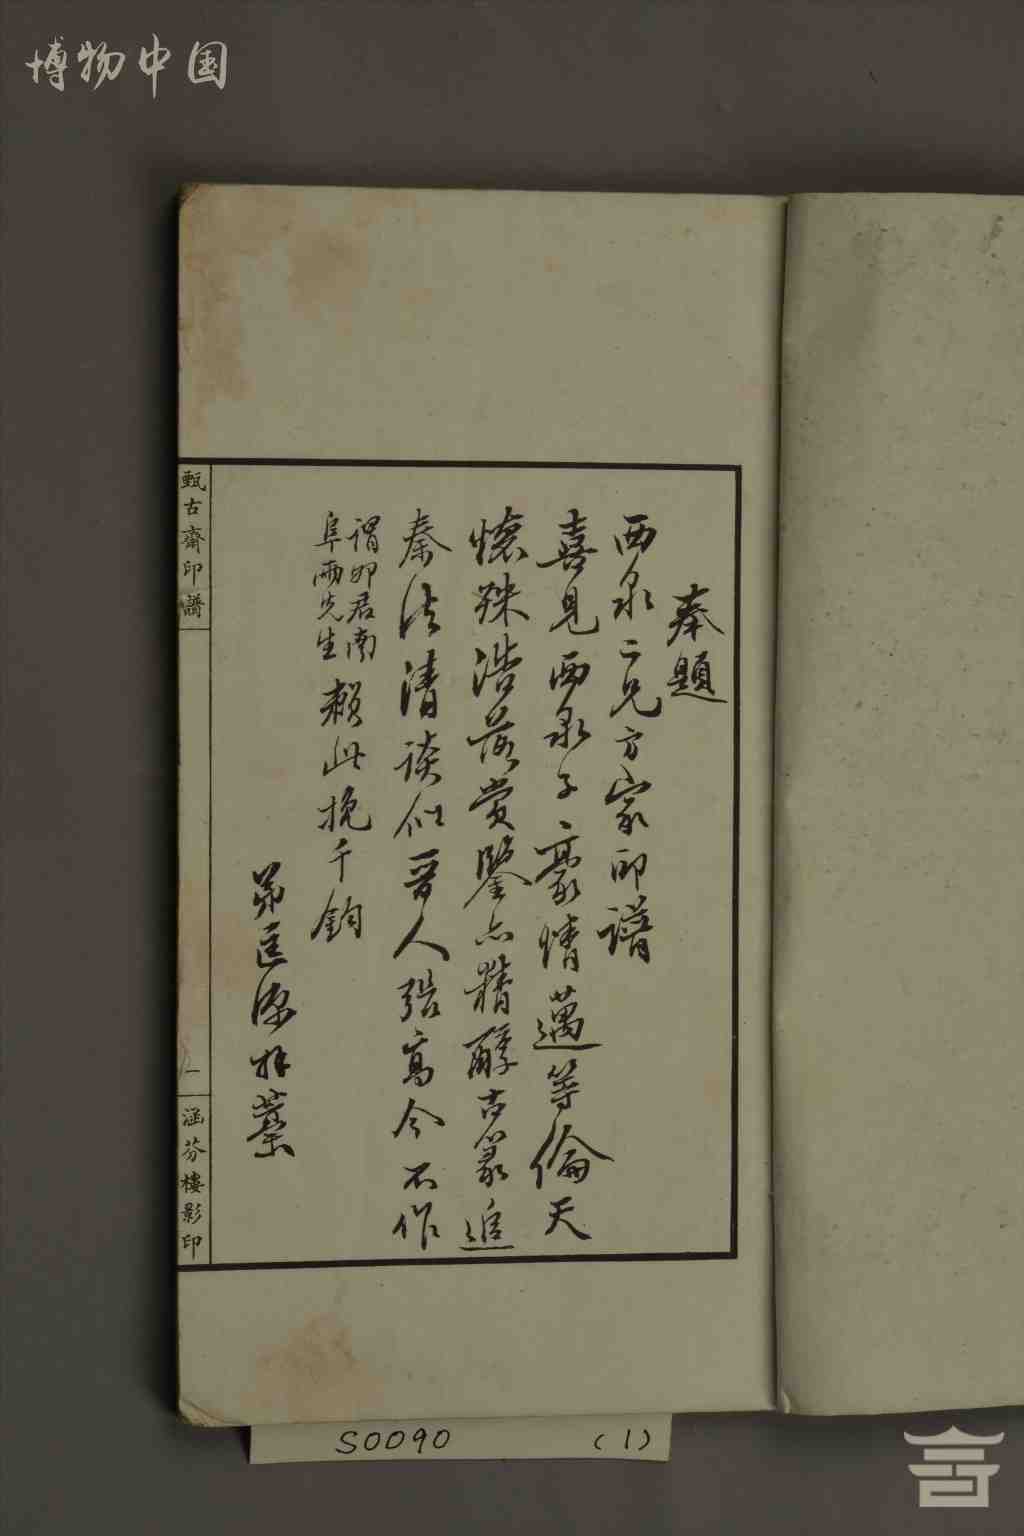 博物中国
奉題
西泉二兄方家印譜
喜見西泉子豪情邁等倫天
懷殊浩落賞鑒亦精醇古篆追
秦法清談似晉人張高今不作
謂卯君南
阜兩先生
賴此挽千鈞
弟匡源拜藁
甄古齋印譜
一
涵芬樓影印
S0090 (1)